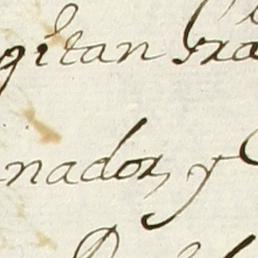 gitan Fra
nador, y